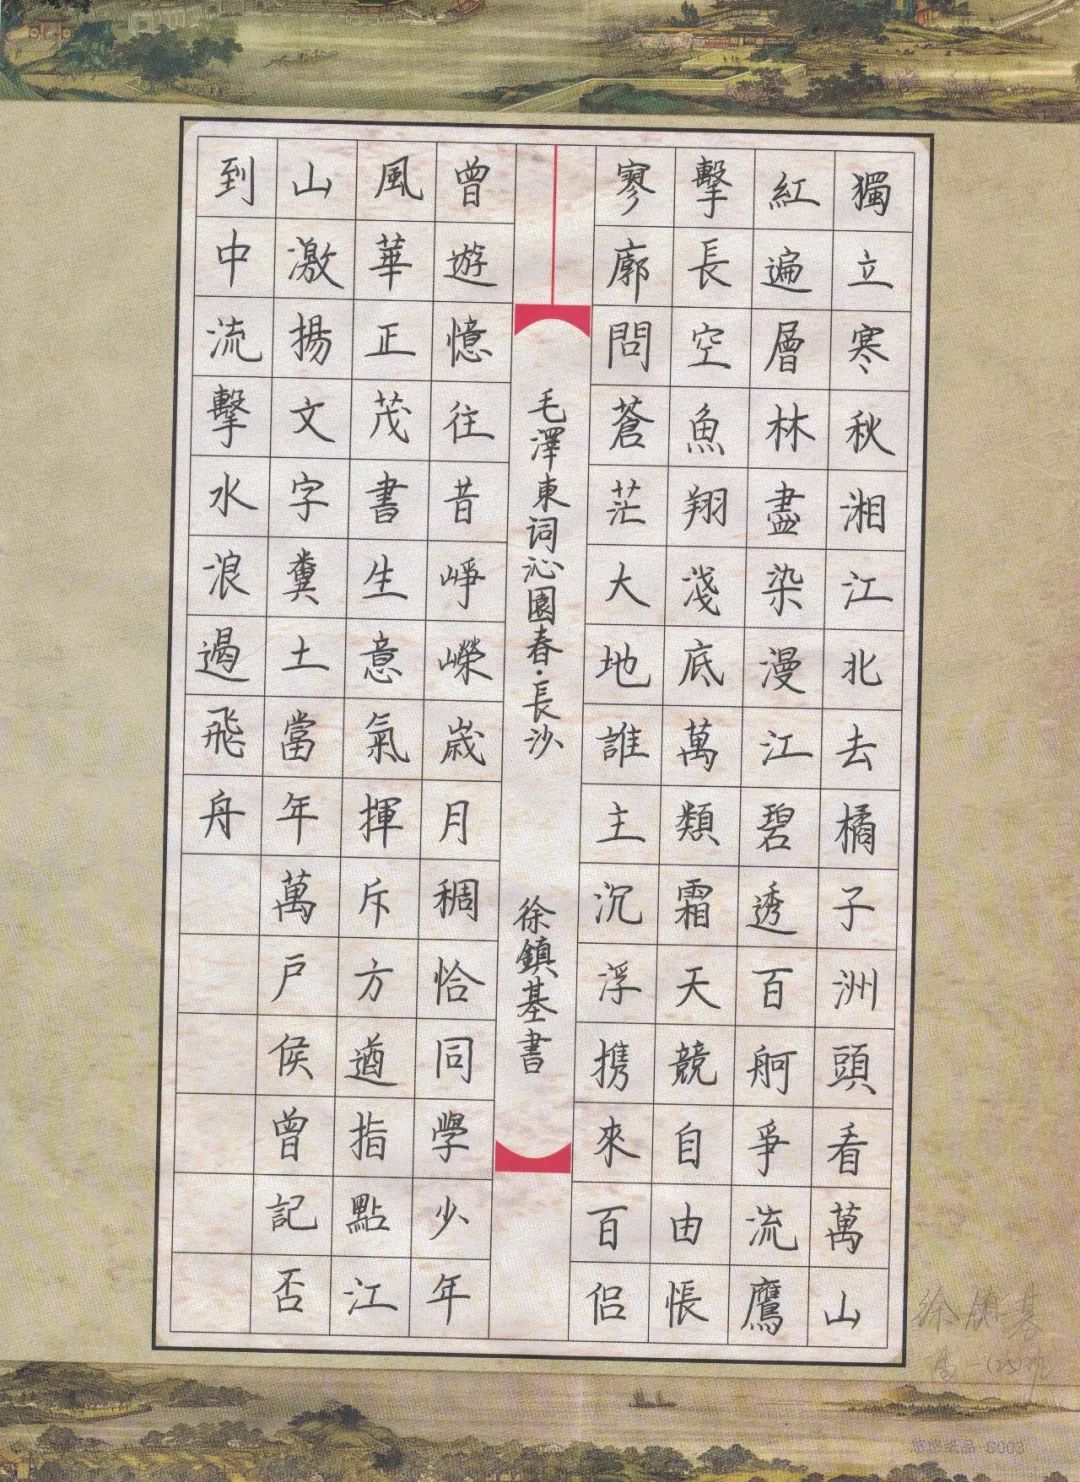 獨立寒秋湘江北去橘子洲頭看萬山
紅遍層林盡染漫江碧透百舸爭流鷹
擊長空魚翔淺底萬類霜天競自由悵
寥廓問蒼茫大地誰主沉浮携來百侶
毛澤東词沁園春·長沙
徐鎮基書
曾遊憶往昔崢嶸歲月稠恰同學少年
風華正茂書生意氣揮斥方遒指點江
山激揚文字糞土當年萬戶侯曾記否
到中流擊水浪遏飛舟
徐鎮基
高一(25)班